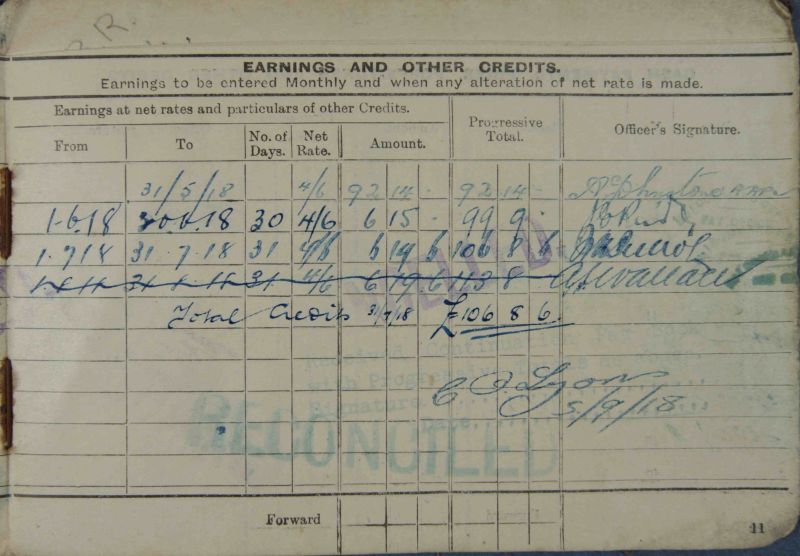 R.
EARNINGS AND OTHER CREDITS.
Earnings to be entered Monthly and when any alteration of net rate is made.
Earnings at net rates and particulars of other Credits.
From To No. of Days. Net Rate. Amount. Progressive Total. Officer's Signature.
31/5/18 4/6 92 14 - 92 14 -
1.6.18 30.6.18 30 4/6 6 15 . 99 9 .
1.7.18 31.7.18 31 4/6 6 19 6 106 8 6
31 4/6 6 19 6 113 8
Total Credits 31/7/18 £106 8 6.
Received
with Progressive
C. J. Lyons
Signature
5/9/18
Date
RECONCILED
Forward
11